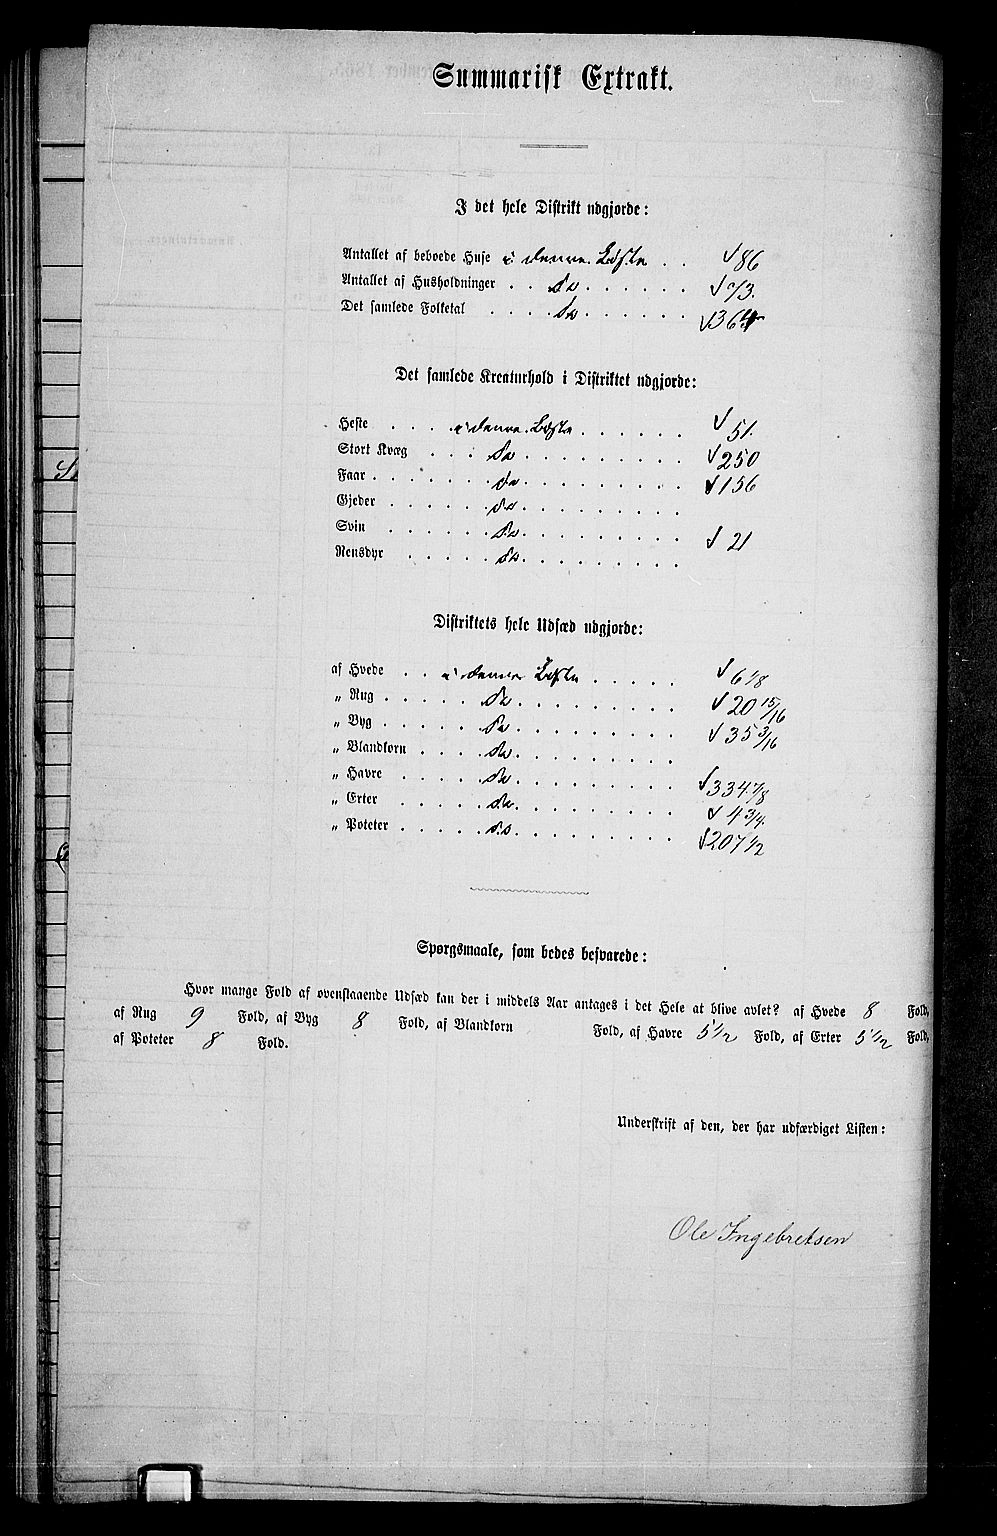 Summarisk Extrakt.
I det hele Distrikt udgjorde:
Antallet af beboede Huse i denne Læste . . √86
Antallet af Husholdninger . . do . . . . . . √73.
Det samlede Folketal . . . . do . . . . . . √364
Det samlede Kreaturhold i Distriktet udgjorde:
Heste . . . . i denne Læste . . . . . . √51.
Stort Kvæg . . . do . . . . . . . . . √250
Faar . . . . . . . do . . . . . . . . . √156
Gjeder . . . . . do . . . . . . . . .
Svin . . . . . do . . . . . . . . . √21
Rensdyr . . . . do . . . . . . . . .
Distriktets hele Udsæd udgjorde:
af Hvede . . i denne Læste . . . . . √6 1/8
„ Rug . . . . . do . . . . . . . . . √20 15/16
„ Byg . . . . . do . . . . . . . . . √35 3/16
„ Blandkorn . . . . do . . . . . . . . .
„ Havre . . . . . do . . . . . . . . . √334 7/8
„ Erter . . . . . do . . . . . . . . . √4 3/4.
„ Poteter . . . . . do . . . . . . . . . √207 1/2
Spørgsmaale, som bedes besvarede:
Hvor mange Fold af ovenstaaende Udsæd kan der i middels Aar antages i det Hele at blive avlet? af Hvede 8 Fold,
af Rug 9 Fold, af Byg 8 Fold, af Blandkorn Fold, af Havre 5 1/2 Fold, af Erter 5 1/2 Fold,
af Poteter 8 Fold.
Underskrift af den, der har udfærdiget Listen:
Ole Ingebretsen